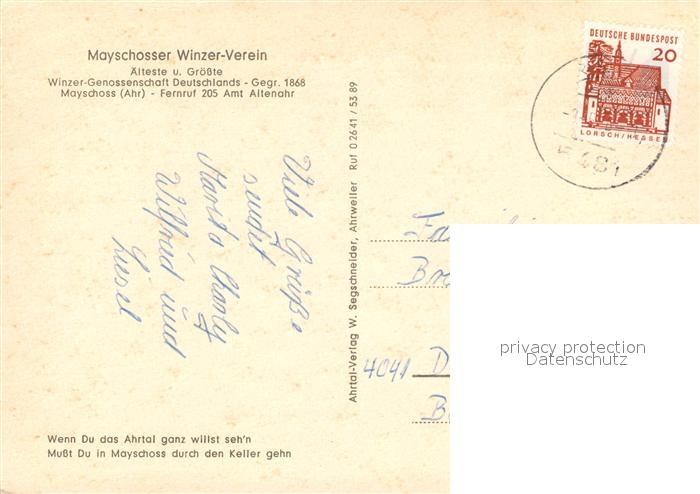 Mayschosser Winzer-Verein
Älteste u. Größte
Winzer-Genossenschaft Deutschlands - Gegr. 1868
Mayschoss (Ahr) - Fernruf 205 Amt Altenahr
Viele Grüße
sendet
Marita Charly
Wilfried und
Liesel
Wenn Du das Ahrtal ganz willst seh'n
Mußt Du in Mayschoss durch den Keller gehn
Ahrtal-Verlag W. Segschneider, Ahrweiler Ruf 0 26 41 / 53 89
DEUTSCHE BUNDESPOST
20
LORSCH/HESSEN
481
Fa
4041 D
privacy protection
Datenschutz